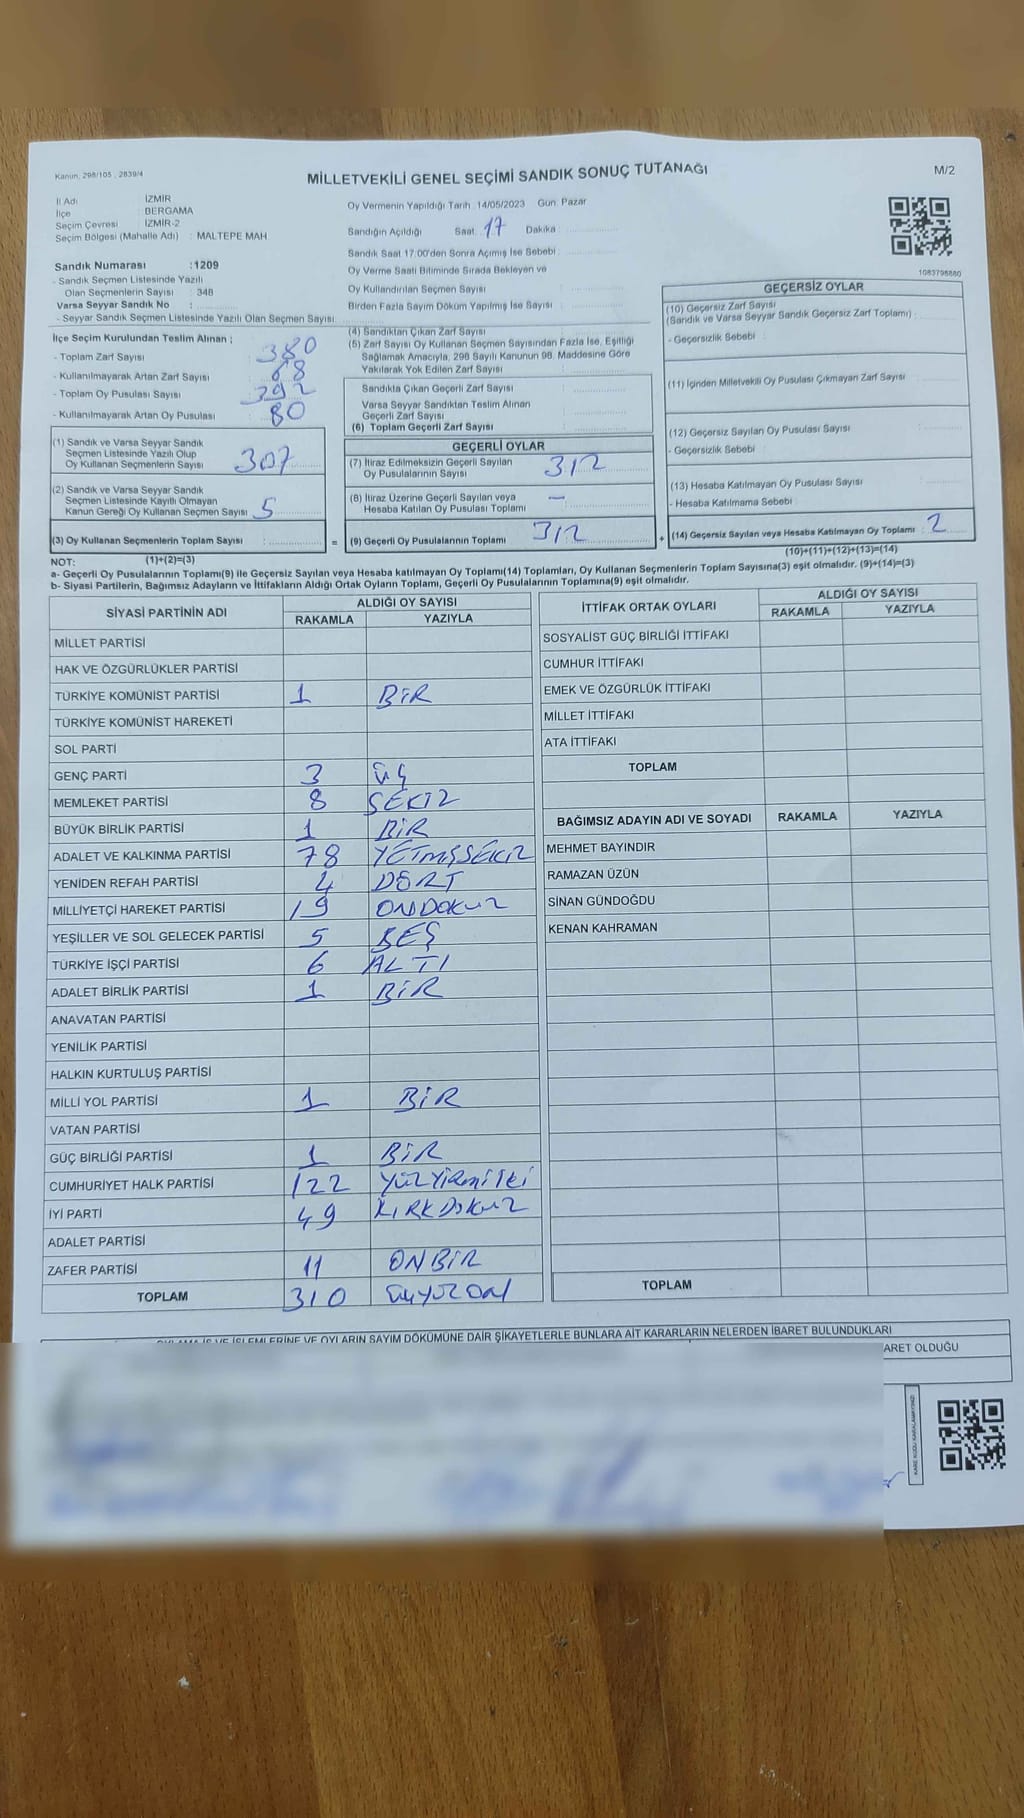 Kanun, 298/105 , 2839/4
MİLLETVEKİLİ GENEL SEÇİMİ SANDIK SONUÇ TUTANAĞI
M/2
İl Adı : İZMİR
İlçe : BERGAMA
Seçim Çevresi : İZMİR-2
Seçim Bölgesi (Mahalle Adı) : MALTEPE MAH
Sandık Numarası :1209
- Sandık Seçmen Listesinde Yazılı
Olan Seçmenlerin Sayısı : 348
Varsa Seyyar Sandık No :
- Seyyar Sandık Seçmen Listesinde Yazılı Olan Seçmen Sayısı:
Oy Vermenin Yapıldığı Tarih :14/05/2023 Gün: Pazar
Sandığın Açıldığı Saat: 17 Dakika :
Sandık Saat 17.00'den Sonra Açımış İse Sebebi :
Oy Verme Saati Bitiminde Sırada Bekleyen ve
Oy Kullandırılan Seçmen Sayısı
Birden Fazla Sayım Döküm Yapılmış İse Sayısı
1083798880
İlçe Seçim Kurulundan Teslim Alınan ;
- Toplam Zarf Sayısı 380
- Kullanılmayarak Artan Zarf Sayısı 68
- Toplam Oy Pusulası Sayısı 392
- Kullanılmayarak Artan Oy Pusulası 80
(1) Sandık ve Varsa Seyyar Sandık
Seçmen Listesinde Yazılı Olup
Oy Kullanan Seçmenlerin Sayısı 307
(2) Sandık ve Varsa Seyyar Sandık
Seçmen Listesinde Kayıtlı Olmayan
Kanun Gereği Oy Kullanan Seçmen Sayısı 5
(3) Oy Kullanan Seçmenlerin Toplam Sayısı :
(1)+(2)=(3)
(4) Sandıktan Çıkan Zarf Sayısı
(5) Zarf Sayısı Oy Kullanan Seçmen Sayısından Fazla İse, Eşitliği
Sağlamak Amacıyla, 298 Sayılı Kanunun 98. Maddesine Göre
Yakılarak Yok Edilen Zarf Sayısı
Sandıkta Çıkan Geçerli Zarf Sayısı
Varsa Seyyar Sandıktan Teslim Alınan
Geçerli Zarf Sayısı
(6) Toplam Geçerli Zarf Sayısı
GEÇERLİ OYLAR
(7) İtiraz Edilmeksizin Geçerli Sayılan
Oy Pusulalarının Sayısı 312
(8) İtiraz Üzerine Geçerli Sayılan veya
Hesaba Katılan Oy Pusulası Toplamı —
= (9) Geçerli Oy Pusulalarının Toplamı 312
GEÇERSİZ OYLAR
(10) Geçersiz Zarf Sayısı
(Sandık ve Varsa Seyyar Sandık Geçersiz Zarf Toplamı) :
- Geçersizlik Sebebi :
(11) İçinden Milletvekili Oy Pusulası Çıkmayan Zarf Sayısı
(12) Geçersiz Sayılan Oy Pusulası Sayısı
- Geçersizlik Sebebi
(13) Hesaba Katılmayan Oy Pusulası Sayısı
- Hesaba Katılmama Sebebi
+ (14) Geçersiz Sayılan veya Hesaba Katılmayan Oy Toplamı : 2
(10)+(11)+(12)+(13)=(14)
NOT:
a- Geçerli Oy Pusulalarının Toplamı(9) ile Geçersiz Sayılan veya Hesaba katılmayan Oy Toplamı(14) Toplamları, Oy Kullanan Seçmenlerin Toplam Sayısına(3) eşit olmalıdır. (9)+(14)=(3)
b- Siyasi Partilerin, Bağımsız Adayların ve İttifakların Aldığı Ortak Oyların Toplamı, Geçerli Oy Pusulalarının Toplamına(9) eşit olmalıdır.
SİYASİ PARTİNİN ADI ALDIĞI OY SAYISI
RAKAMLA YAZIYLA
MİLLET PARTİSİ
HAK VE ÖZGÜRLÜKLER PARTİSİ
TÜRKİYE KOMÜNİST PARTİSİ 1 BİR
TÜRKİYE KOMÜNİST HAREKETİ
SOL PARTİ
GENÇ PARTİ 3 ÜÇ
MEMLEKET PARTİSİ 8 SEKİZ
BÜYÜK BİRLİK PARTİSİ 1 BİR
ADALET VE KALKINMA PARTİSİ 78 YETMİŞSEKİZ
YENİDEN REFAH PARTİSİ 4 DÖRT
MİLLİYETÇİ HAREKET PARTİSİ 19 ONDOKUZ
YEŞİLLER VE SOL GELECEK PARTİSİ 5 BEŞ
TÜRKİYE İŞÇİ PARTİSİ 6 ALTI
ADALET BİRLİK PARTİSİ 1 BİR
ANAVATAN PARTİSİ
YENİLİK PARTİSİ
HALKIN KURTULUŞ PARTİSİ
MİLLİ YOL PARTİSİ 1 BİR
VATAN PARTİSİ
GÜÇ BİRLİĞİ PARTİSİ 1 BİR
CUMHURİYET HALK PARTİSİ 122 YÜZYİRMİİKİ
İYİ PARTİ 49 KIRKDOKUZ
ADALET PARTİSİ
ZAFER PARTİSİ 11 ONBİR
TOPLAM 310 ÜÇYÜZON
İTTİFAK ORTAK OYLARI ALDIĞI OY SAYISI
RAKAMLA YAZIYLA
SOSYALİST GÜÇ BİRLİĞİ İTTİFAKI
CUMHUR İTTİFAKI
EMEK VE ÖZGÜRLÜK İTTİFAKI
MİLLET İTTİFAKI
ATA İTTİFAKI
TOPLAM
BAĞIMSIZ ADAYIN ADI VE SOYADI RAKAMLA YAZIYLA
MEHMET BAYINDIR
RAMAZAN ÜZÜN
SİNAN GÜNDOĞDU
KENAN KAHRAMAN
TOPLAM
İŞLEMLERİNE VE OYLARIN SAYIM DÖKÜMÜNE DAİR ŞİKAYETLERLE BUNLARA AİT KARARLARIN NELERDEN İBARET BULUNDUKLARI
ARET OLDUĞU
KARE KODU KARALAMAYINIZ!